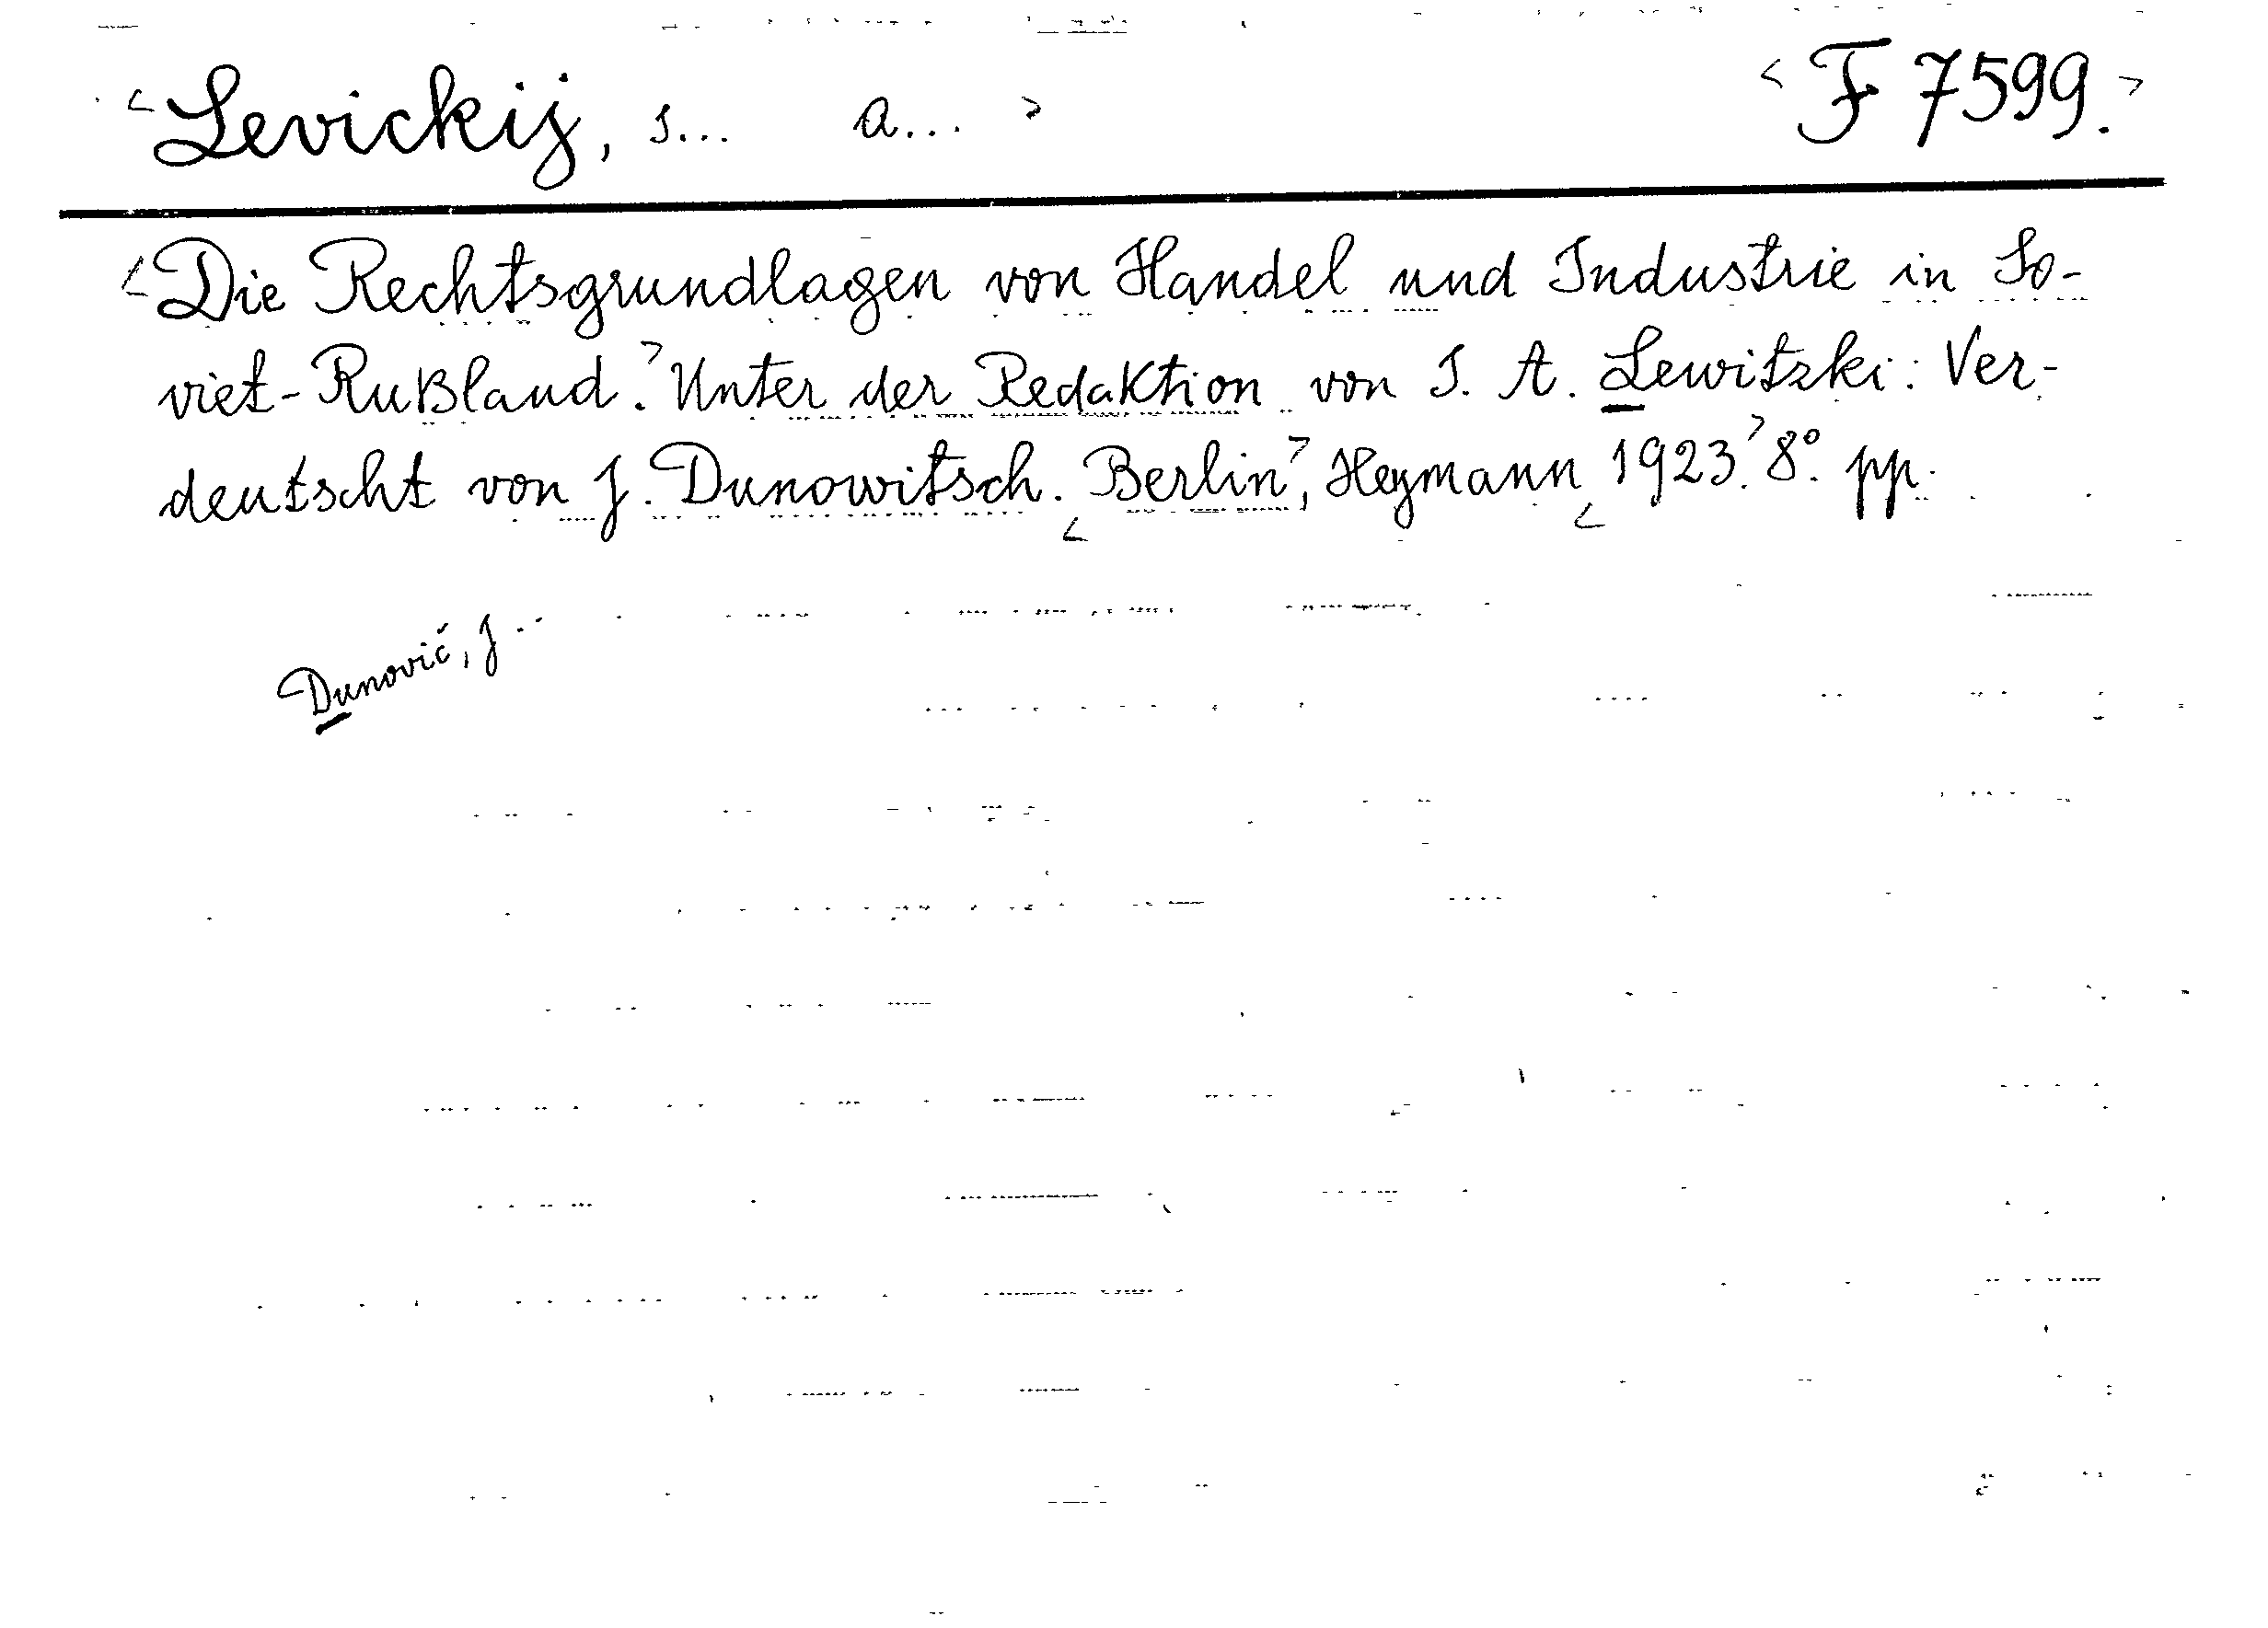 <Levickij, s... a...> <F 7599.>
<Die Rechtsgrundlagen von Handel und Industrie in So-
viet-Rußland.> Unter der Redaktion von S. A. Lewitzki. Ver-
deutscht von J. Dunowitsch. <Berlin>, Heymann <1923.> 8°. pp.
Dunovič, J...